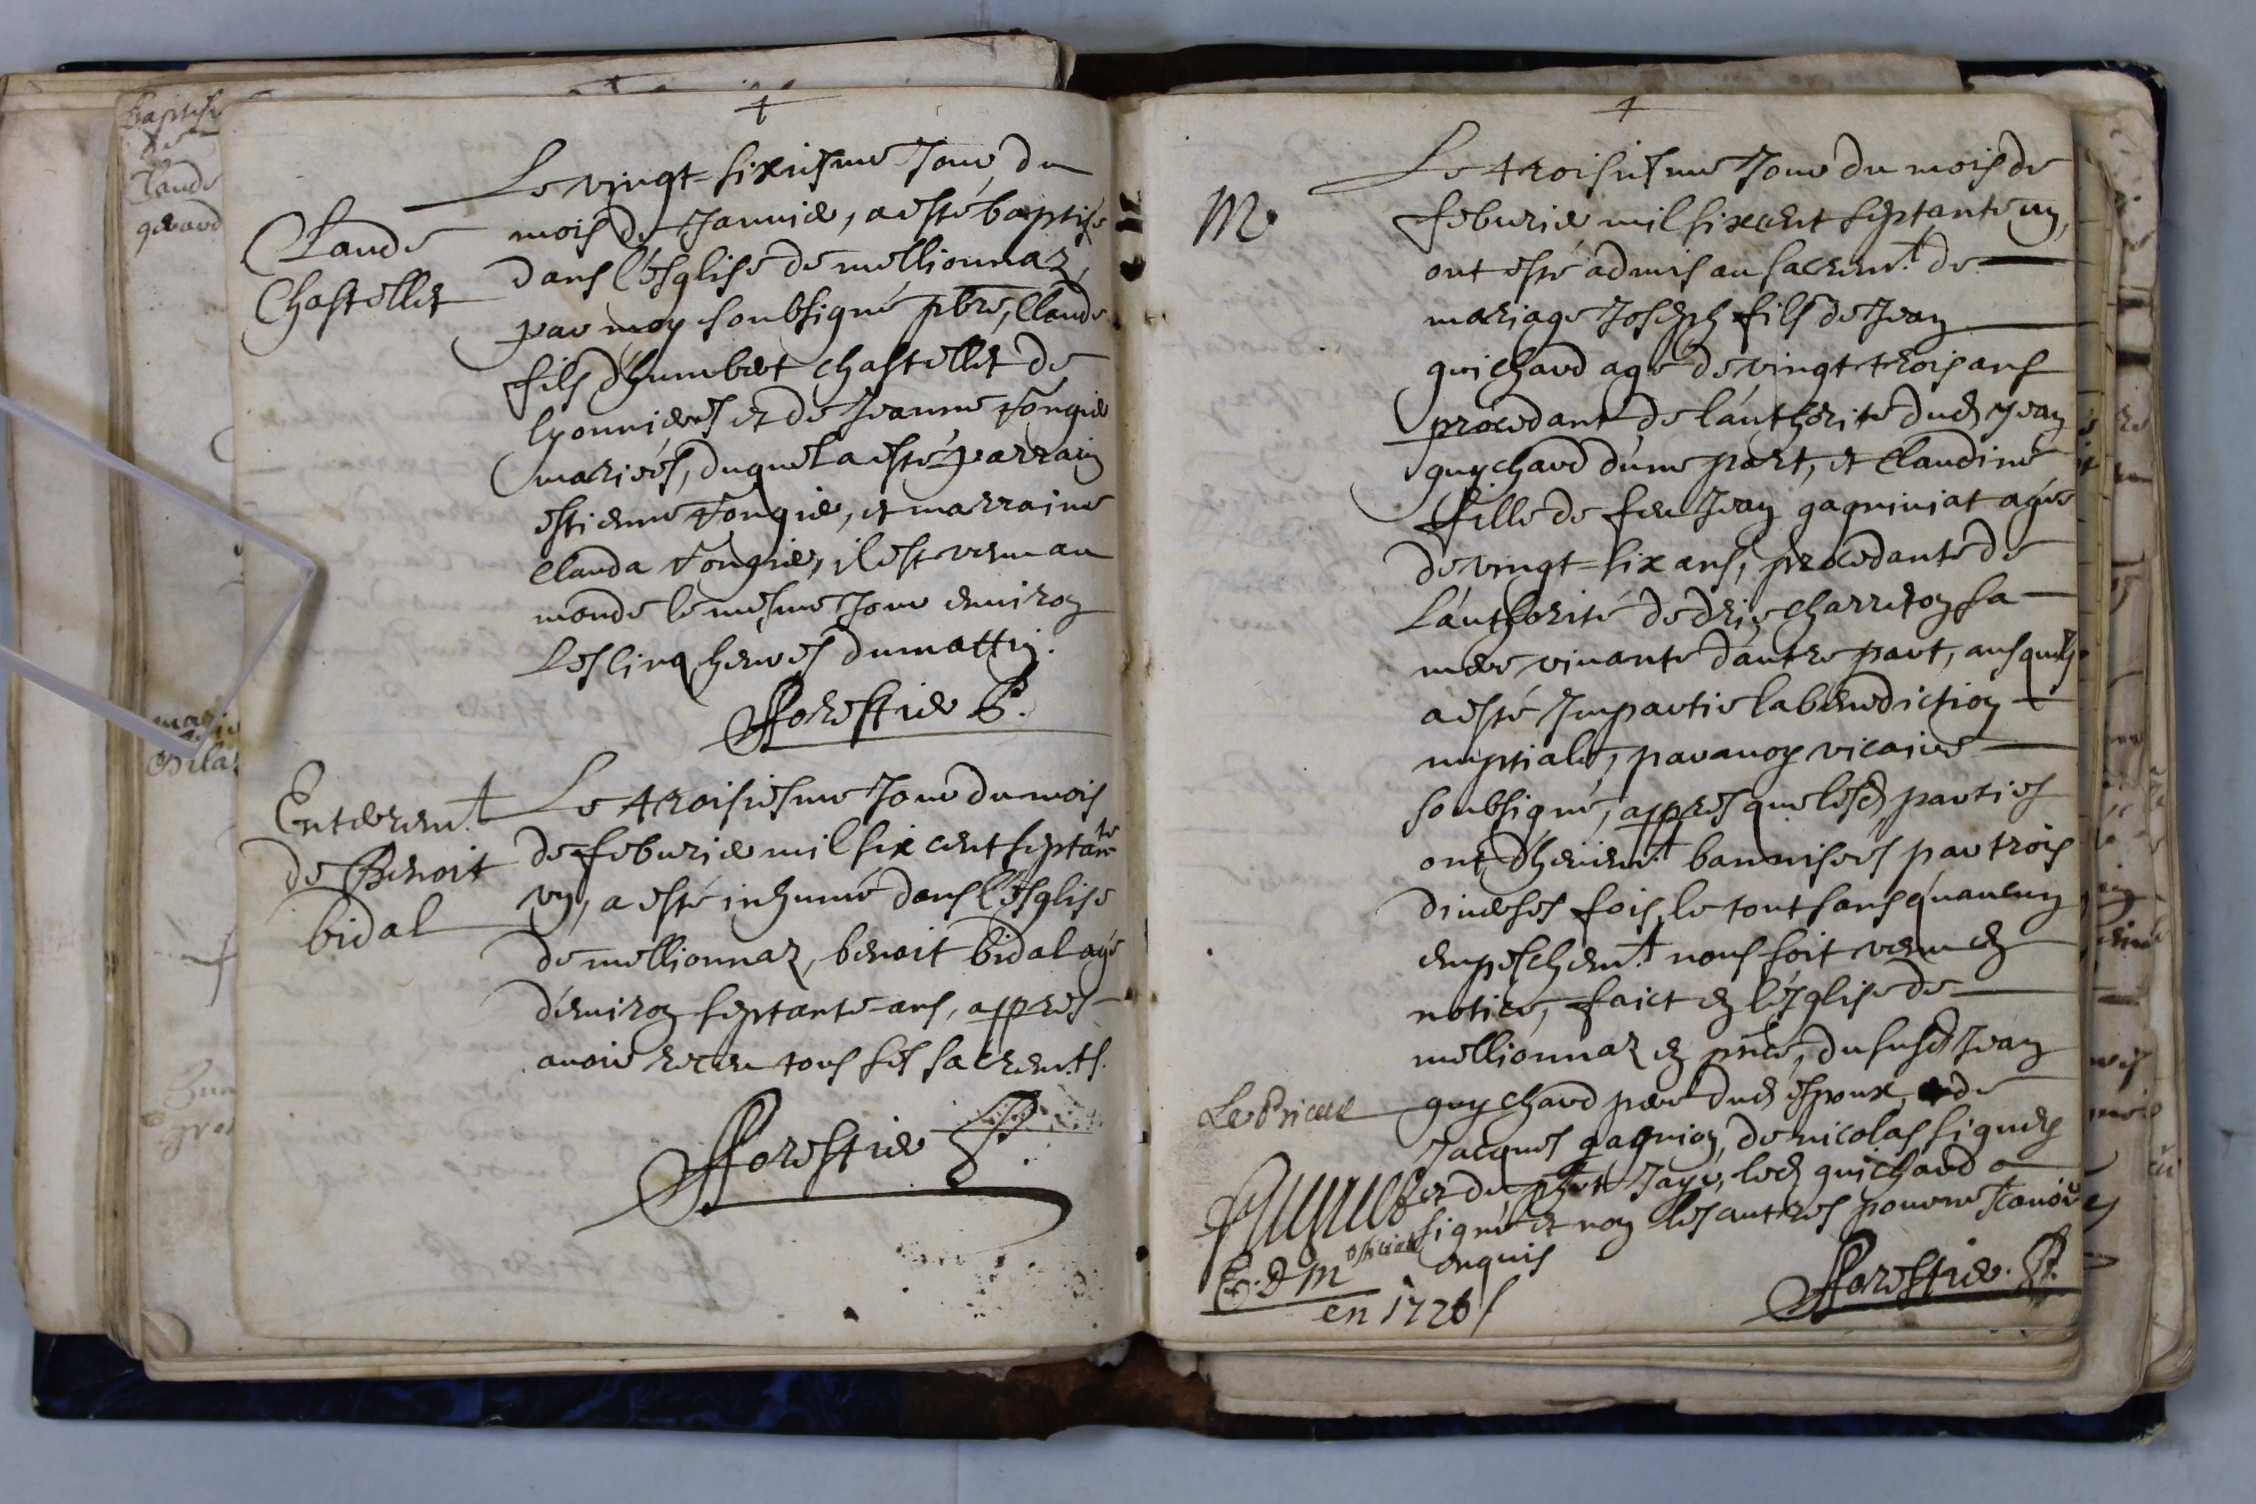 Baptise
de
Claude
gerard
Claude
Chastellet
Le vingt=sixiesme Jour du
mois de Januier, a esté baptisé
dans l'esglise de mellionnaz,
par moy soubsigné pbre, Claude
fils d'humbert chastellet de
lyonnieres et de Jeanne Tongier
mariés, duquel a esté parrain
estienne Tongier, et marraine
Clauda Tongier, il est venu au
monde le mesme Jour enuiron
Les cinq heures du mattin.
fforestier P.
Enterem.t
de Benoit
bidal
Le troisiesme Jour du mois
de feburier mil six cent septante
vn, a esté inhumé dans l'esglise
de mellionnaz, benoit bidal agé
d'enuiron septante ans, appres
auoir receu tous ses sacrem.ts.
fforestier P.
M.
Le troisiesme Jour du mois de
feburier mil six cent septante un,
ont esté admis au sacrem.t de
mariage Joseph fils de Jean
guichard agé de vingt trois ans
procedant de l'autherité dud Jean
guychard d'une part, et Claudine
fille de feu Jean gagniniat agée
de vingt=six ans, procedante de
L'authorité de charreton sa
mere viuante d'autre part, ausquels
a esté Impartie la benediction
nuptiale, par moy vicaire
soubsigné, appres que lesd parties
ont d'heüem.t bannisées par trois
diuerses fois, le tout sans qu'aucun
empeschem.t nous soit venu en
notice, faict en l'ésglise de
mellionnaz en pnce, du susd Jean
guychard pere dud espoux, de
Jacques gagnion, de nicolas
et de Jaye, led guichard a
signé et non les autres pour ne scauoir
enquis
fforestier. P.
Le Prieur
E. D M
en 1726